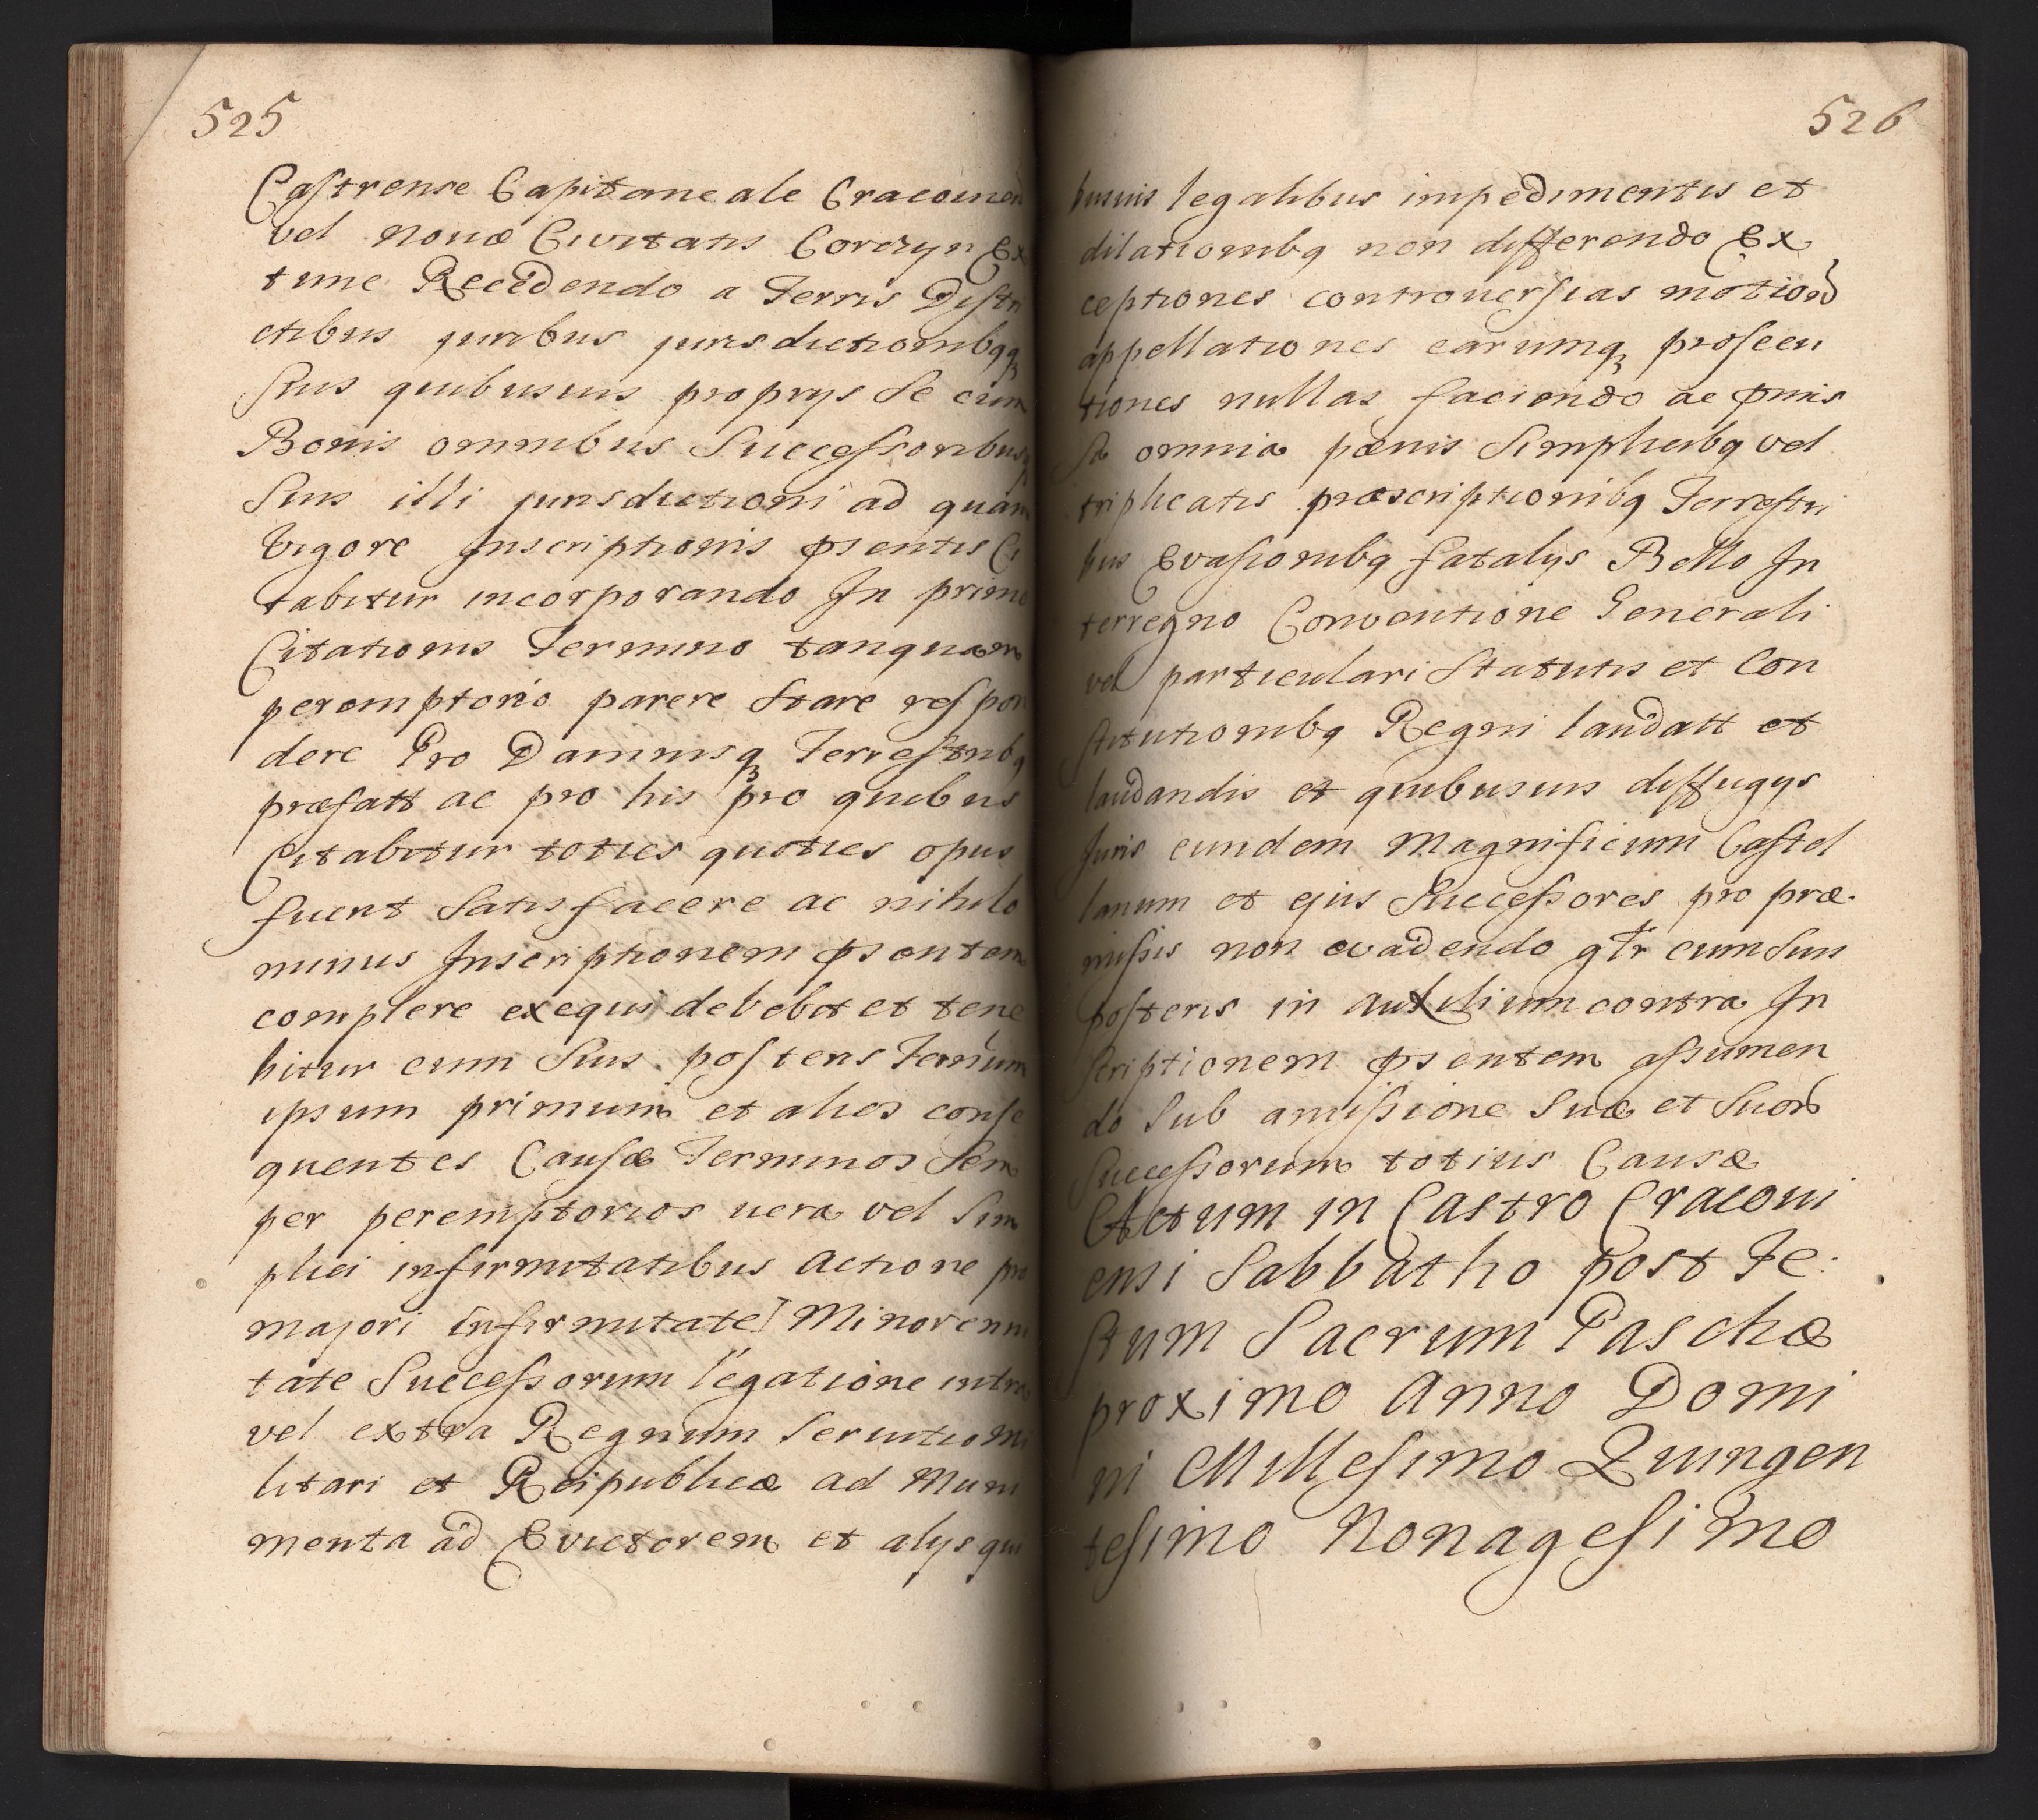 525
Castrense Capitaneale Cracouien
vel nouæ Ciuitatis Corczyn Ex
tunc Recedendo a Terris Distri
ctibus juribus jurisdictionibqqꝫ
suis quibusuis proprijs se cum
Bonis omnibus Successoribusqꝫ
suis illi jurisdictioni ad quam
Vigore Inscriptionis pñsentis Ci
tabitur incorporando In primo
Citationis Termino tanquam
peremptorio parere stare respon
dere Pro Damnisqꝫ Terrestribq
præfatt ac pro his pro quibus
Citabitur toties quoties opus
fuerit satisfacere ac nihilo
minus Inscriptionem pñsentem
complere exequi debebit et tene
bitur cum suis posteris Terminum
ipsum primum et alios conse
quentes Causæ Terminos sem
per peremptorios uera vel sim
plici infirmitatibus actione pro
majori infirmitate] Minorenni
tate Successorum legatione intra
vel extra Regnum seruitio mi
litari et Reipublicæ ad Muni
menta ad Euictorem et alijs qui
526
busuis legalibus impedimentis et
dilationibq non differendo Ex
ceptiones controuersias motiones
appellationes earumqꝫ prosecu
tiones nullas faciendo ac pmis
sa omnia pœnis simplicibq vel
triplicatis præscriptionibq Terrestri
bus Evasionibq fatalijs Bello In
terregno Conventione Generali
vel particulari statutis et Con
stitutionibq Regni laudatt et
laudandis et quibusuis diffugijs
Juris eundem Magnificum Castel
lanum et ejus Successores pro præ
missis non evadendo gtr cum suis
posteris in auxilium contra In
scriptionem pñsentem assumen
do sub amissione suæ et suor
Successorum totius Causæ
Actum in Castro Cracoui
ensi Sabbatho post Fe:
stum Sacrum Paschæ
proximo Anno Domi
ni Millesimo Quingen
tesimo Nonagesimo